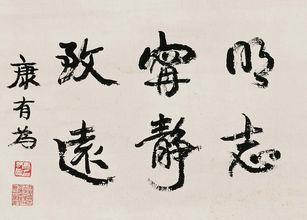 明志
寧静
致遠
康有為